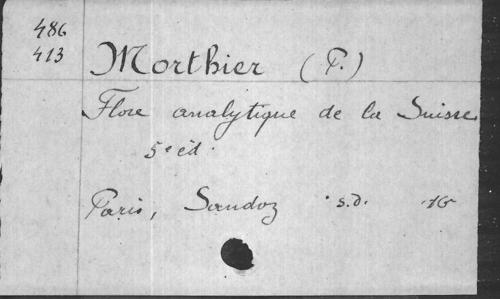 486
413
Morthier (P.)
Flore analytique de la Suisse
5e éd.
Paris, Sandoz s.d. 16